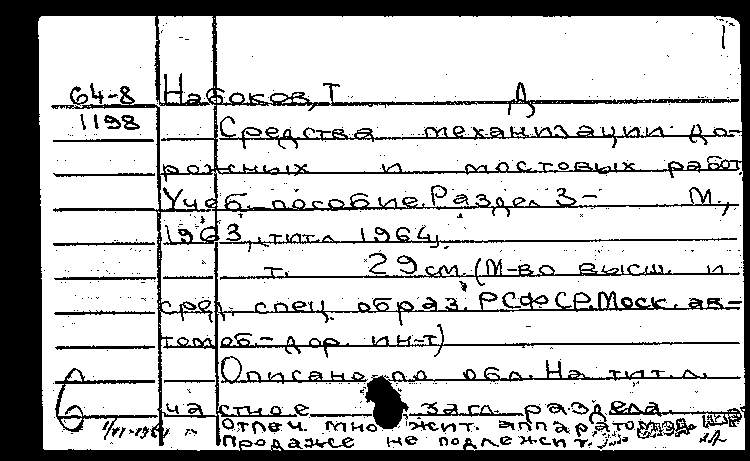 64-8 Набоков, Т Д
1198 Средства механизации до-
рожных и мостовых работ
Учеб. пособие. Раздел 3- М.,
1963, [тит.л 1964].
т. 29 см. (М-во высш. и
сред. спец. образ. РСФСР. Моск. ав-
томоб.-дор. ин-т)
Описано по обл. На тит. л.
частное загл. раздела.
Отпеч. множит. аппаратом
Продаже не подлежит.